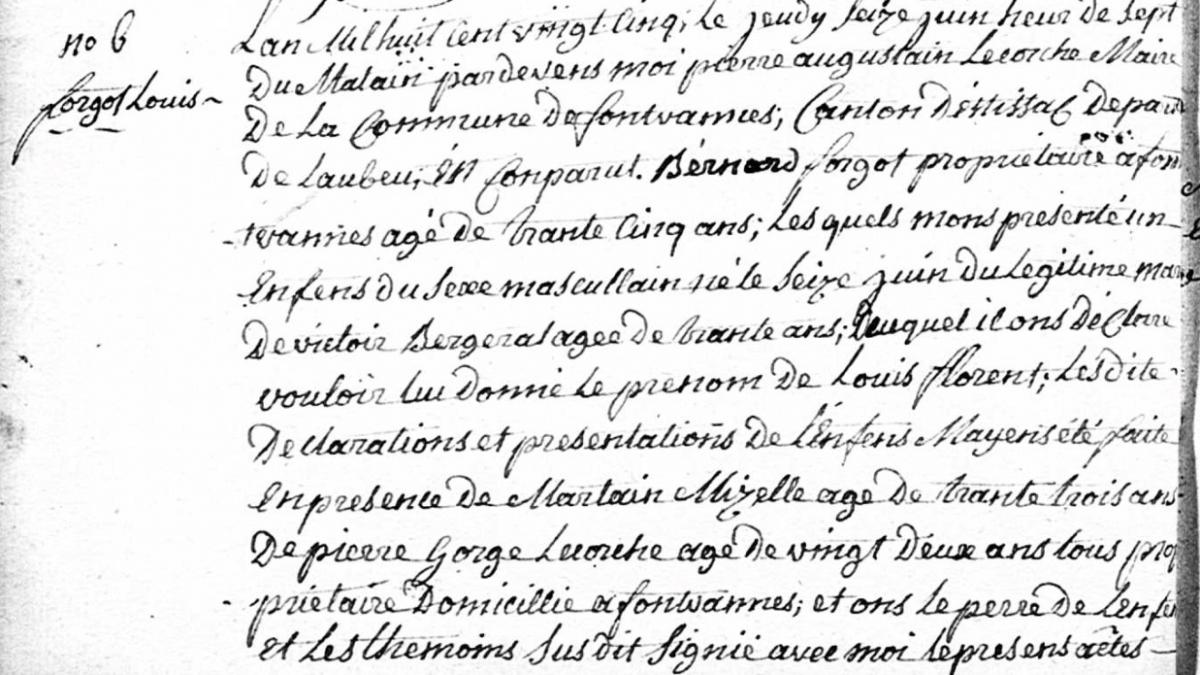 no 6
forgot Louis
Lan Mil huit Cent vingt Cinq, Le jeudy Seize juin heur de Sept
Du Matain pardevens moi pierre augustain Lecorche Maire
De La Commune De fontvannes, Canton Déstissac Depar
De Laube, En Conparut. Bérnard forgot proprietaire a fon
tvannes agé De trante Cinq ans; Les quels mons presenté un
Enfens Du Sexe mascullain né le Seize juin Du Legitime mar
De victoir Bergerat agee De trante ans; Duquel il ons Déclore
vouloir lui Donné Le prenom De Louis florent; Les Dite
Declarations et presentations De LEnfens Mayens été faite
En presence De Martain Mizelle age De trante trois ans
De pierre Gorge Lecorche age De vingt Deux ans tous pro
prietaire Domicillie a fontvannes; et ons Le perre De LEnfen
et Les themoins Sus dit Signié avec moi le presens actes